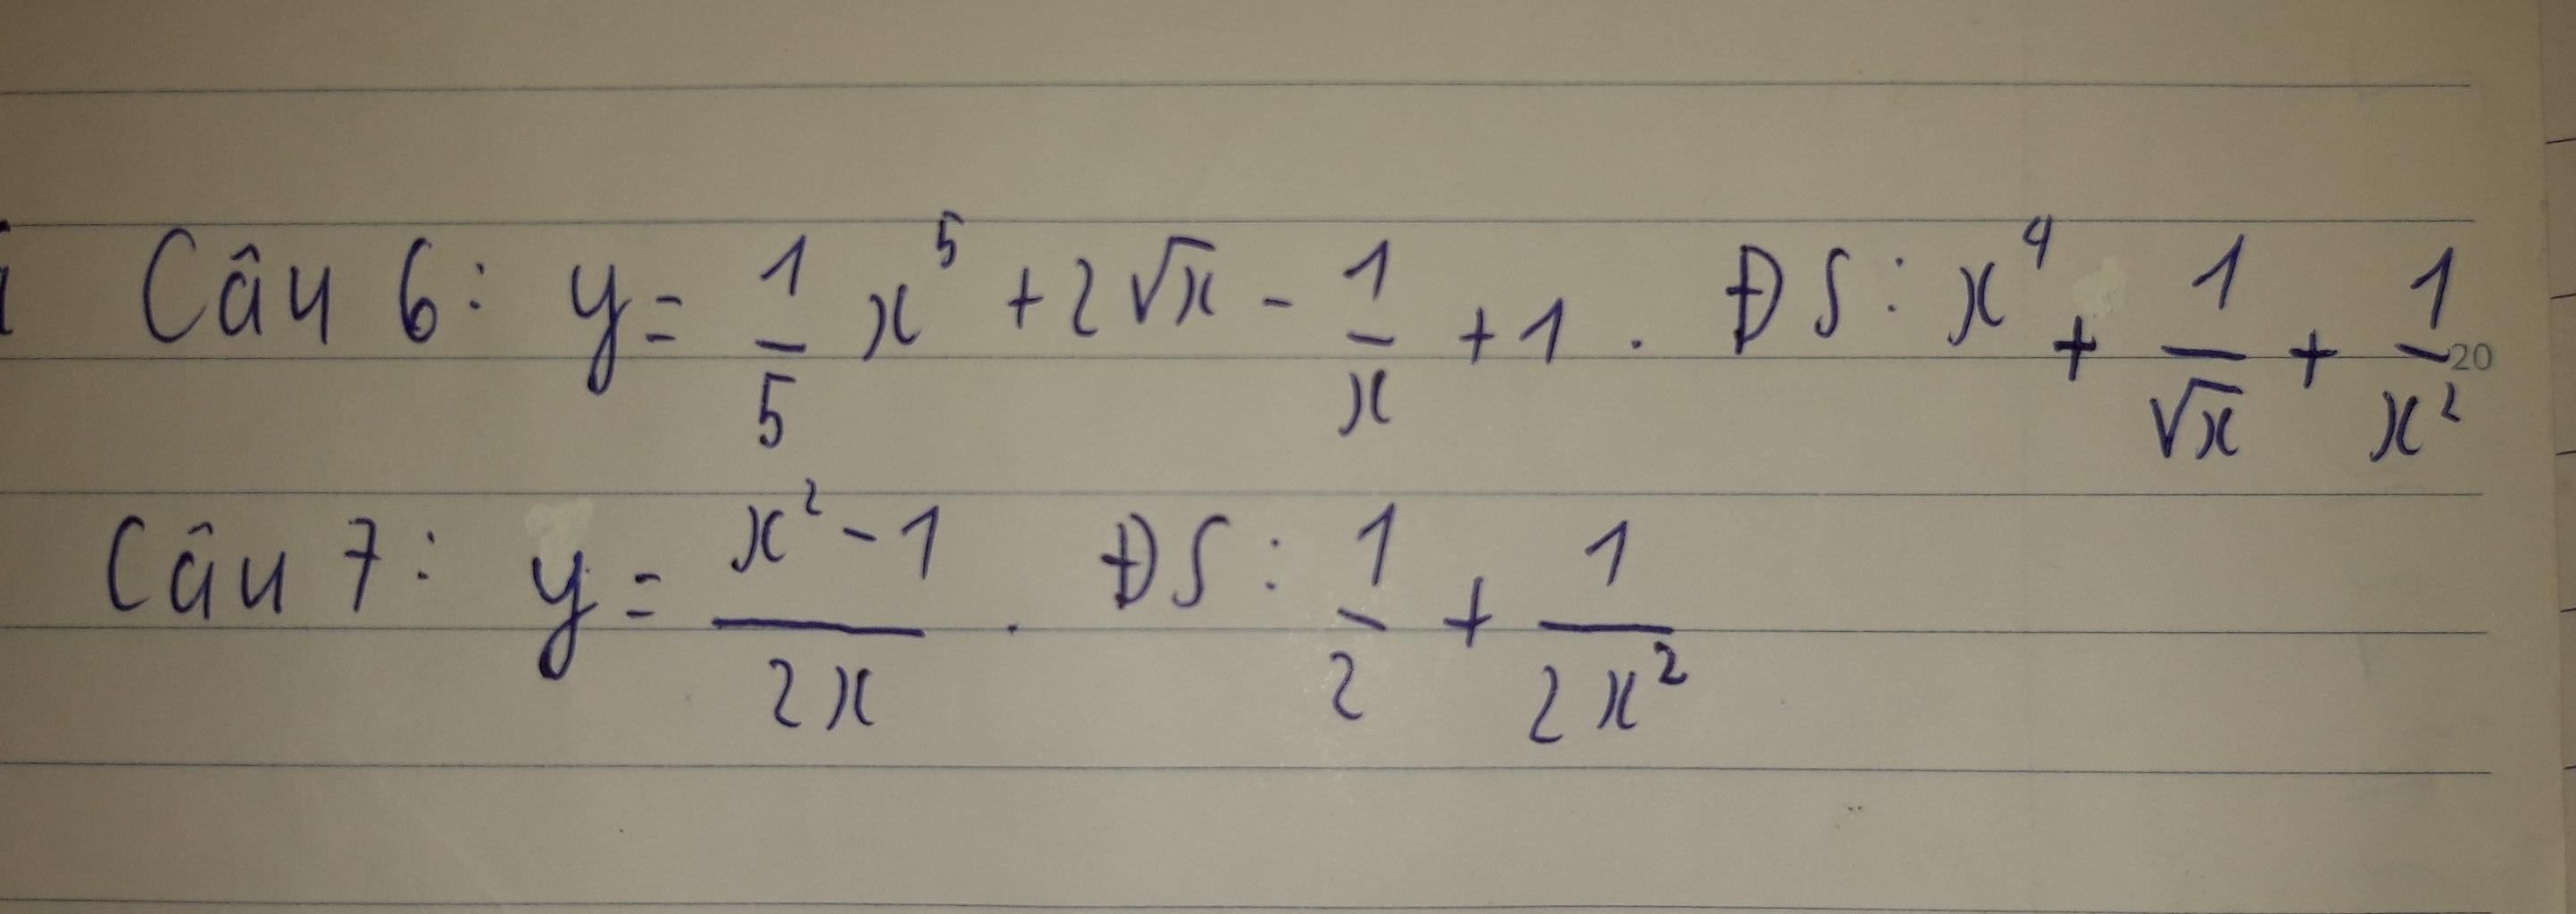 Câu 6: y = 1/5 x⁵ + 2√x - 1/x + 1 . ĐS: x⁴ + 1/√x + 1/x²
20
Câu 7: y = (x² - 1)/(2x) . ĐS: 1/2 + 1/(2x²)